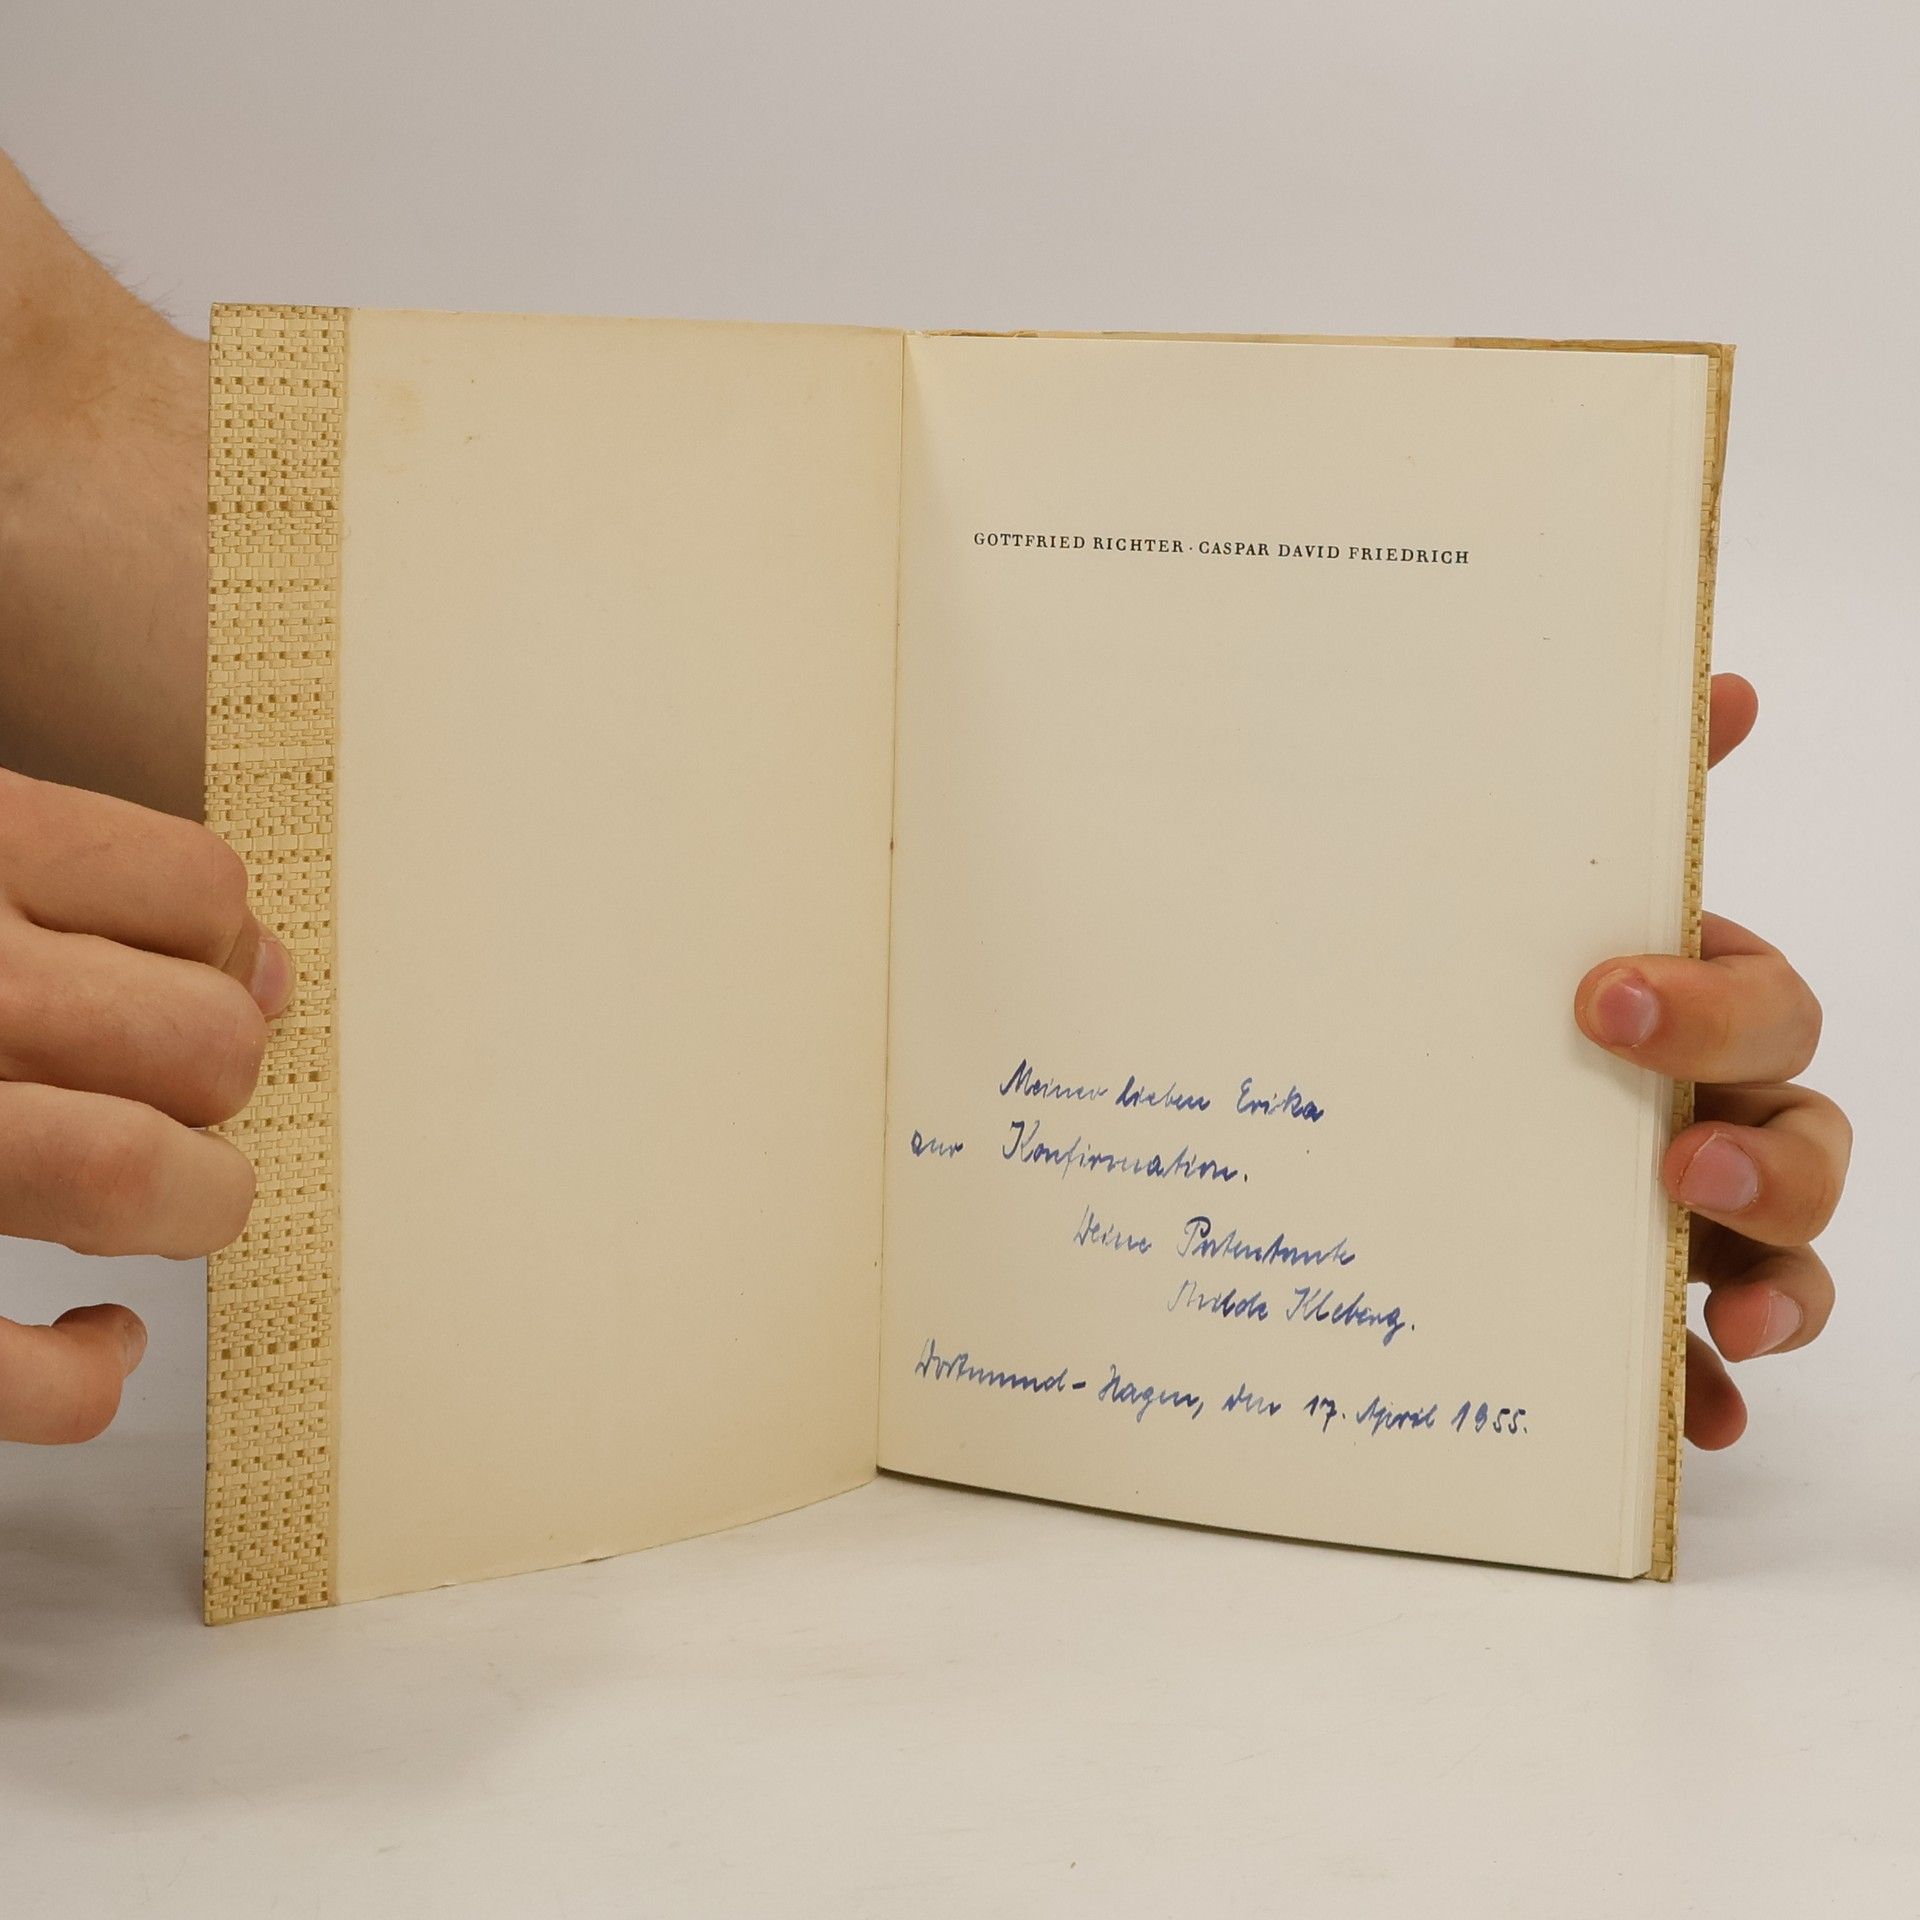 GOTTFRIED RICHTER · CASPAR DAVID FRIEDRICH
Meiner lieben Erika
zur Konfirmation.
Deine Patentante
Kleberg.
Dortmund - Hagen, den 17. April 1955.